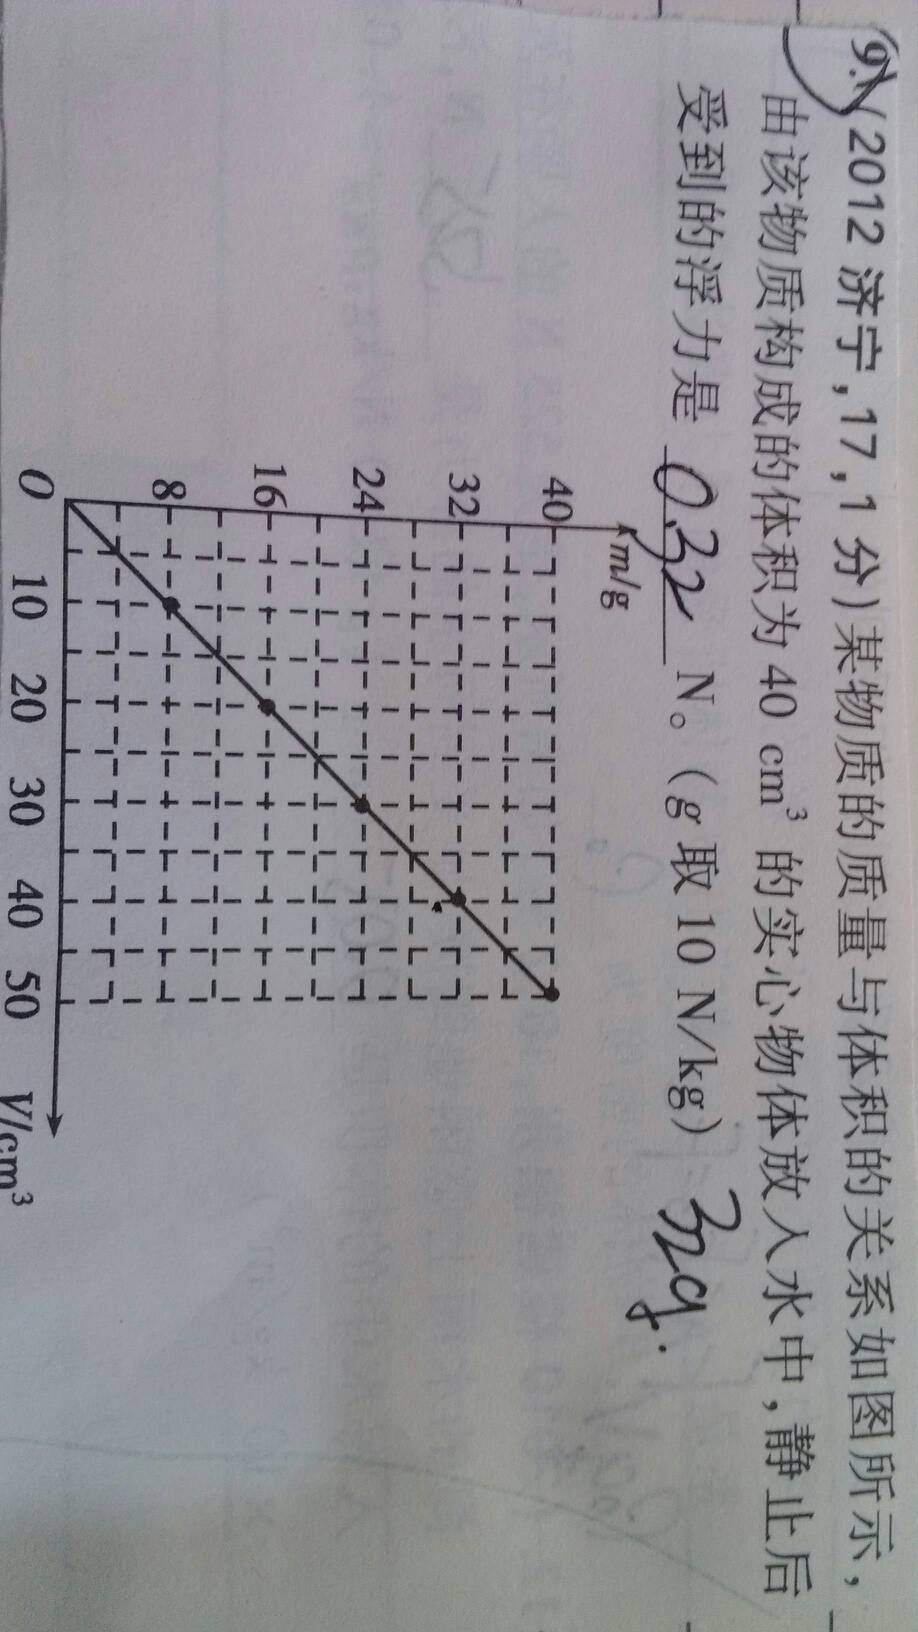 9.(2012 济宁,17,1 分)某物质的质量与体积的关系如图所示,
由该物质构成的体积为 40 cm³ 的实心物体放入水中,静止后
受到的浮力是 0.32 N。(g 取 10 N/kg) 32g.
m/g
40
32
24
16
8
O 10 20 30 40 50 V/cm³